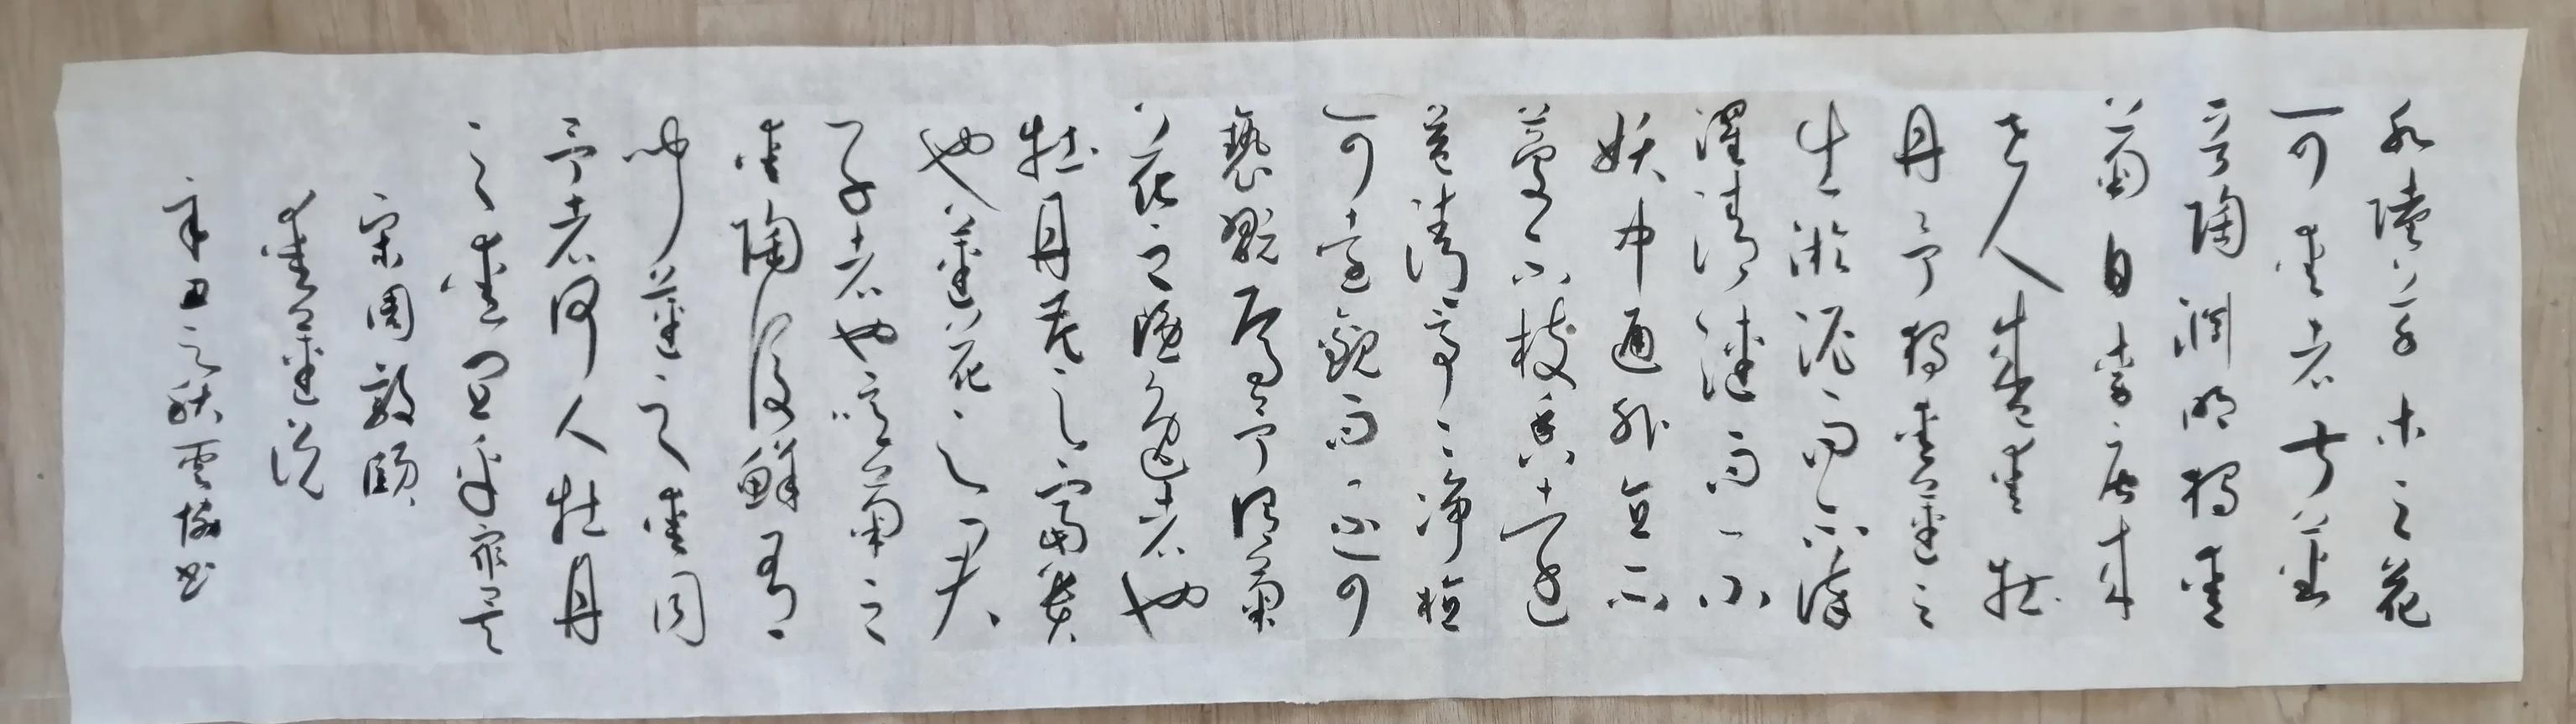 水陸草木之花
可愛者甚蕃
晉陶淵明獨愛
菊自李唐來
世人盛愛牡
丹予獨愛蓮之
出淤泥而不染
濯清漣而不
妖中通外直不
蔓不枝香遠
益清亭亭淨植
可遠觀而不可
褻翫焉予謂菊
花之隱逸者也
牡丹花之富貴
也蓮花之君
子者也噫菊之
愛陶後鮮有
聞蓮之愛同
予者何人牡丹
之愛宜乎眾矣
宋周敦頤
愛蓮說
辛丑之秋雲 書